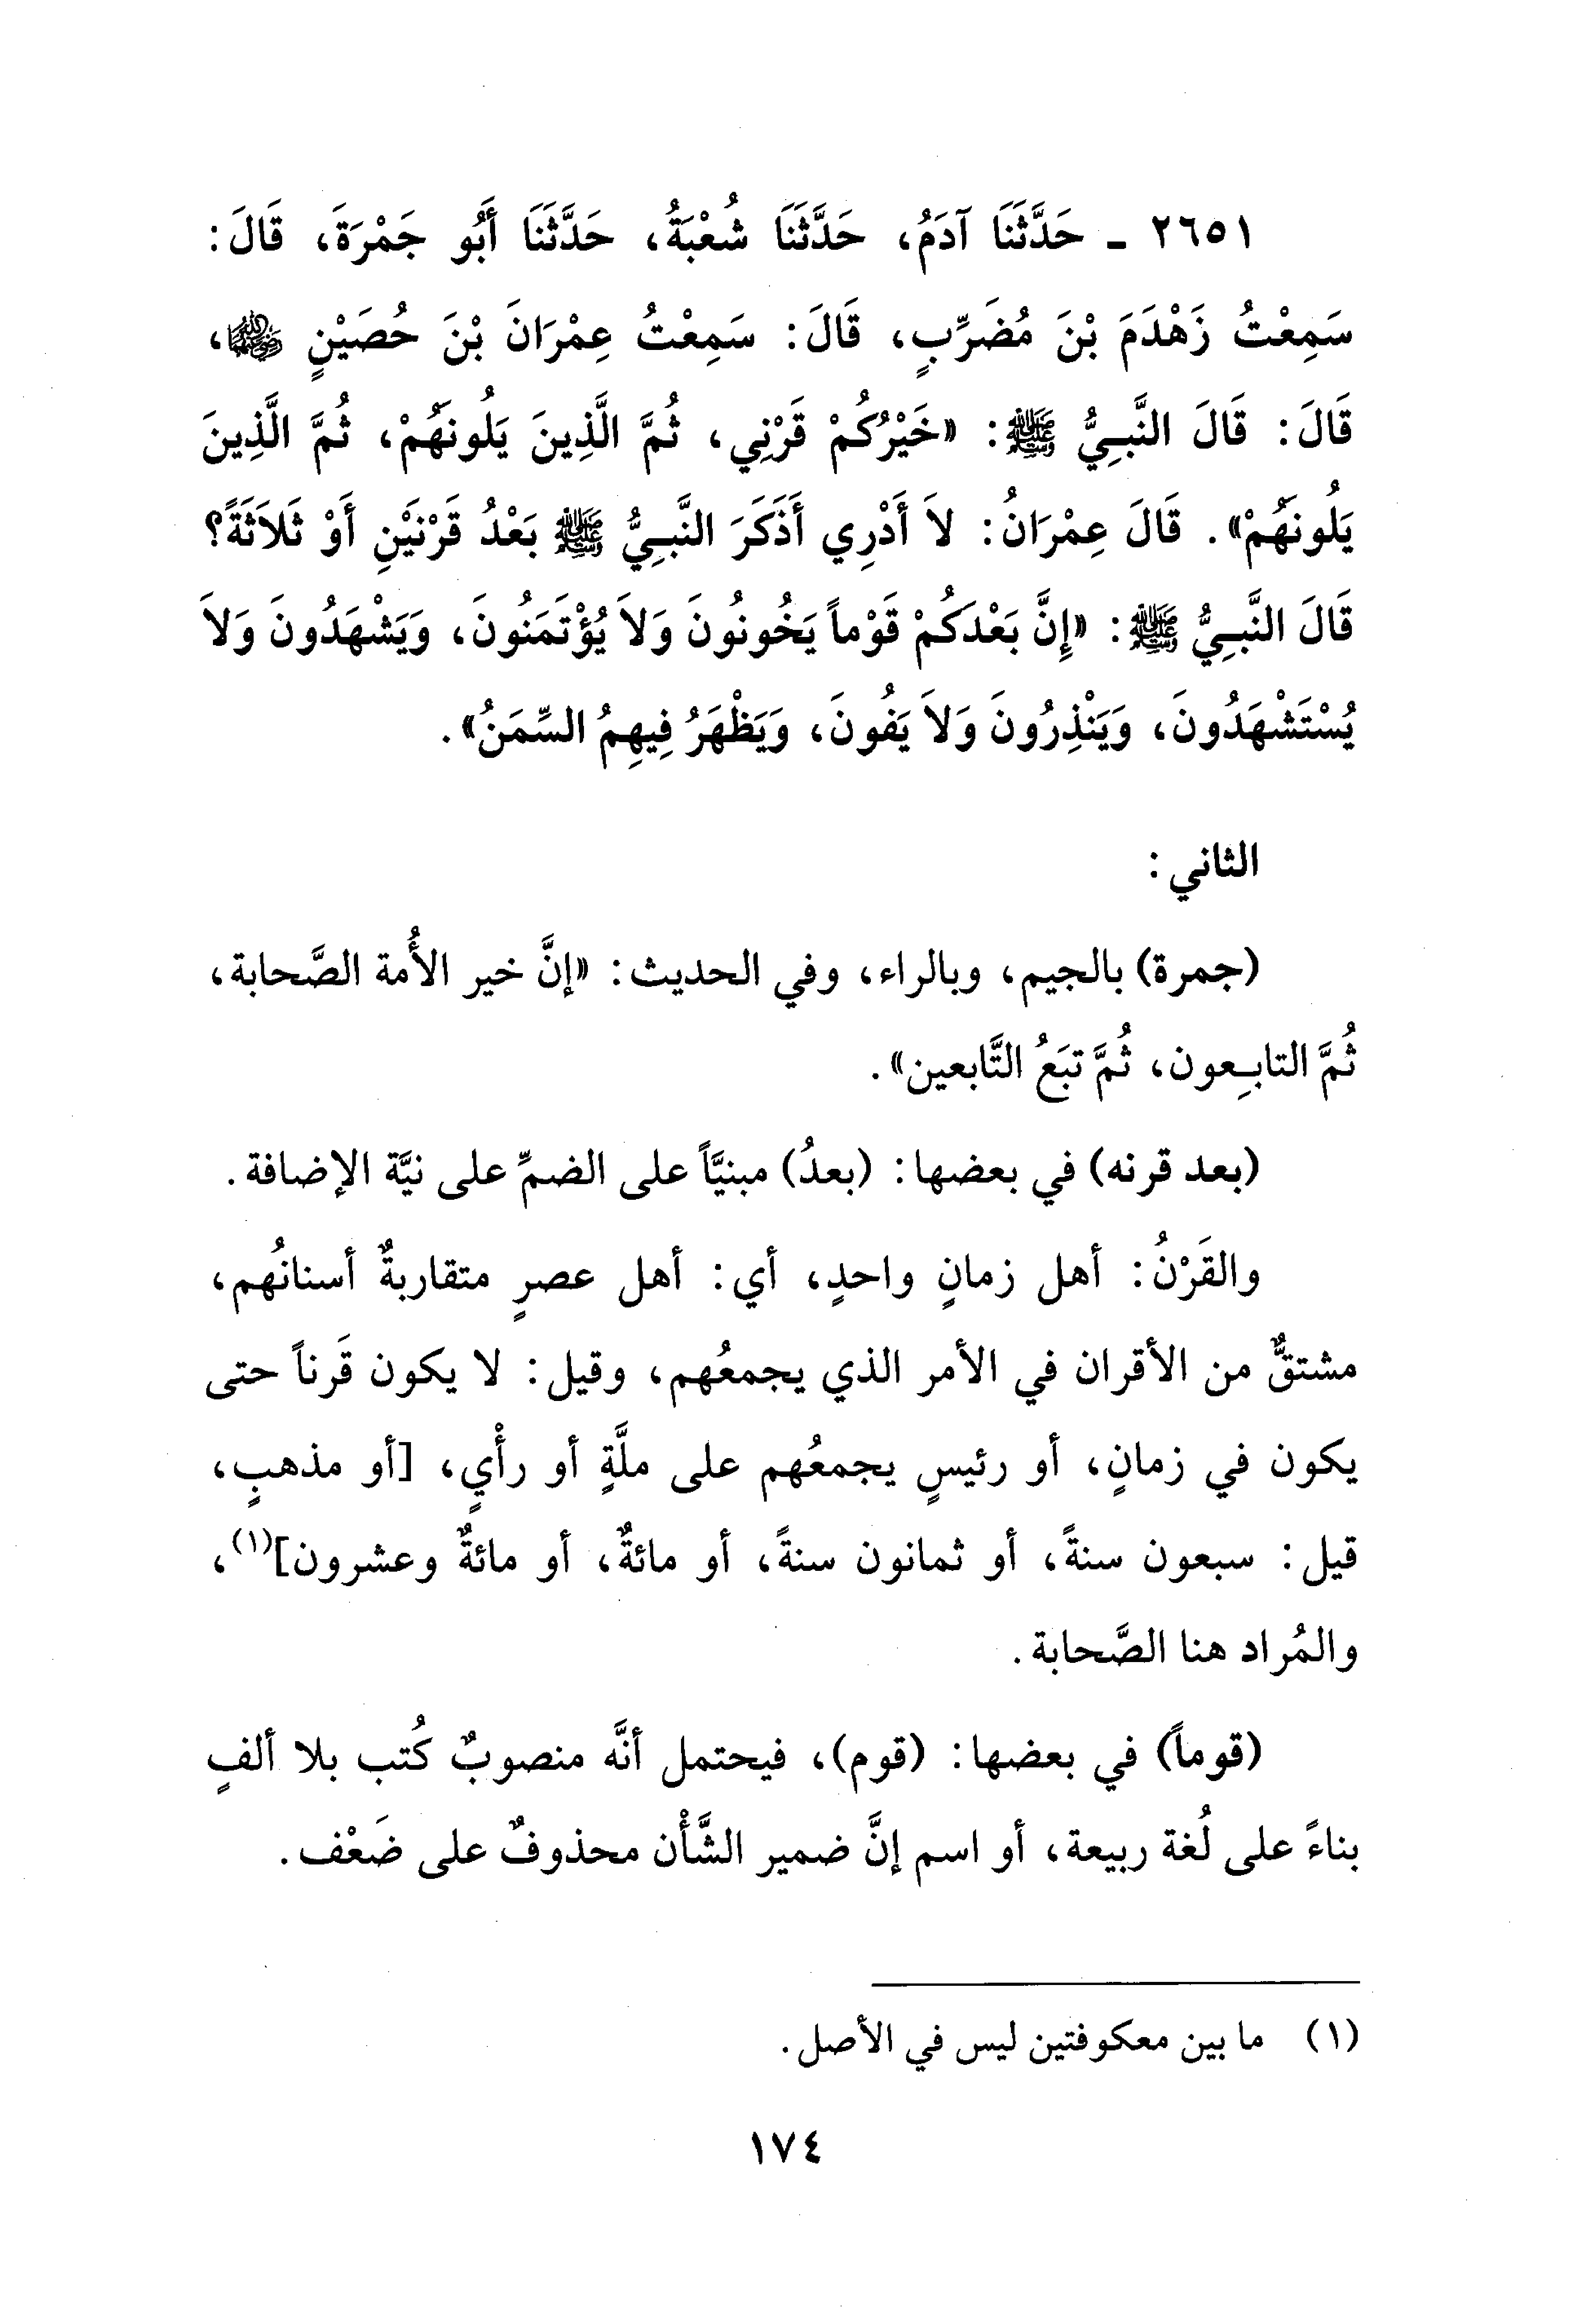 ٢٦٥١ - حَدَّثَنَا آدَمُ، حَدَّثَنَا شُعْبَةُ، حَدَّثَنَا أَبُو جَمْرَةَ، قَالَ:
سَمِعْتُ زَهْدَمَ بْنَ مُضَرِّبٍ، قَالَ: سَمِعْتُ عِمْرَانَ بْنَ حُصَيْنٍ رضي الله عنهما،
قَالَ: قَالَ النَّبِيُّ ﷺ: «خَيْرُكُمْ قَرْنِي، ثُمَّ الَّذِينَ يَلُونَهُمْ، ثُمَّ الَّذِينَ
يَلُونَهُمْ». قَالَ عِمْرَانُ: لاَ أَدْرِي أَذَكَرَ النَّبِيُّ ﷺ بَعْدُ قَرْنَيْنِ أَوْ ثَلاَثَةً؟
قَالَ النَّبِيُّ ﷺ: «إِنَّ بَعْدَكُمْ قَوْماً يَخُونُونَ وَلاَ يُؤْتَمَنُونَ، وَيَشْهَدُونَ وَلاَ
يُسْتَشْهَدُونَ، وَيَنْذِرُونَ وَلاَ يَفُونَ، وَيَظْهَرُ فِيهِمُ السِّمَنُ».
الثاني:
(جمرة) بالجيم، وبالراء، وفي الحديث: «إنَّ خير الأُمة الصَّحابة،
ثُمَّ التابعون، ثُمَّ تبَعُ التَّابعين».
(بعد قرنه) في بعضها: (بعدُ) مبنيَّاً على الضمِّ على نيَّة الإضافة.
والقَرْنُ: أهل زمانٍ واحدٍ، أي: أهل عصرٍ متقاربةٌ أسنانُهم،
مشتقٌّ من الأقران في الأمر الذي يجمعُهم، وقيل: لا يكون قَرناً حتى
يكون في زمانٍ، أو رئيسٍ يجمعُهم على ملَّةٍ أو رأْيٍ، [أو مذهبٍ،
قيل: سبعون سنةً، أو ثمانون سنةً، أو مائةٌ، أو مائةٌ وعشرون](١)،
والمُراد هنا الصَّحابة.
(قوماً) في بعضها: (قوم)، فيحتمل أنَّه منصوبٌ كُتب بلا ألفٍ
بناءً على لُغة ربيعة، أو اسم إنَّ ضمير الشَّأْن محذوفٌ على ضَعْف.
(١) ما بين معكوفتين ليس في الأصل.
١٧٤